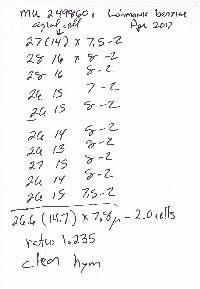 MU 249860,
apical cell Apr 2017
27 (14) x 7.5-2
28 16 x 8-2
28 16 8-2
26 15 7-2
26 15 8-2
26 14 8-2
26 13 8-2
27 15 8-2
26 14 8-2
26 15 7.5-2
26.6 (14.7) x 7.8µ - 2.0 cells
ratio 1.235
clear hym